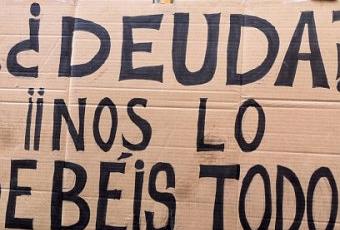 ¡¿DEUDA?
¡¡NOS LO
DEBÉIS TODO